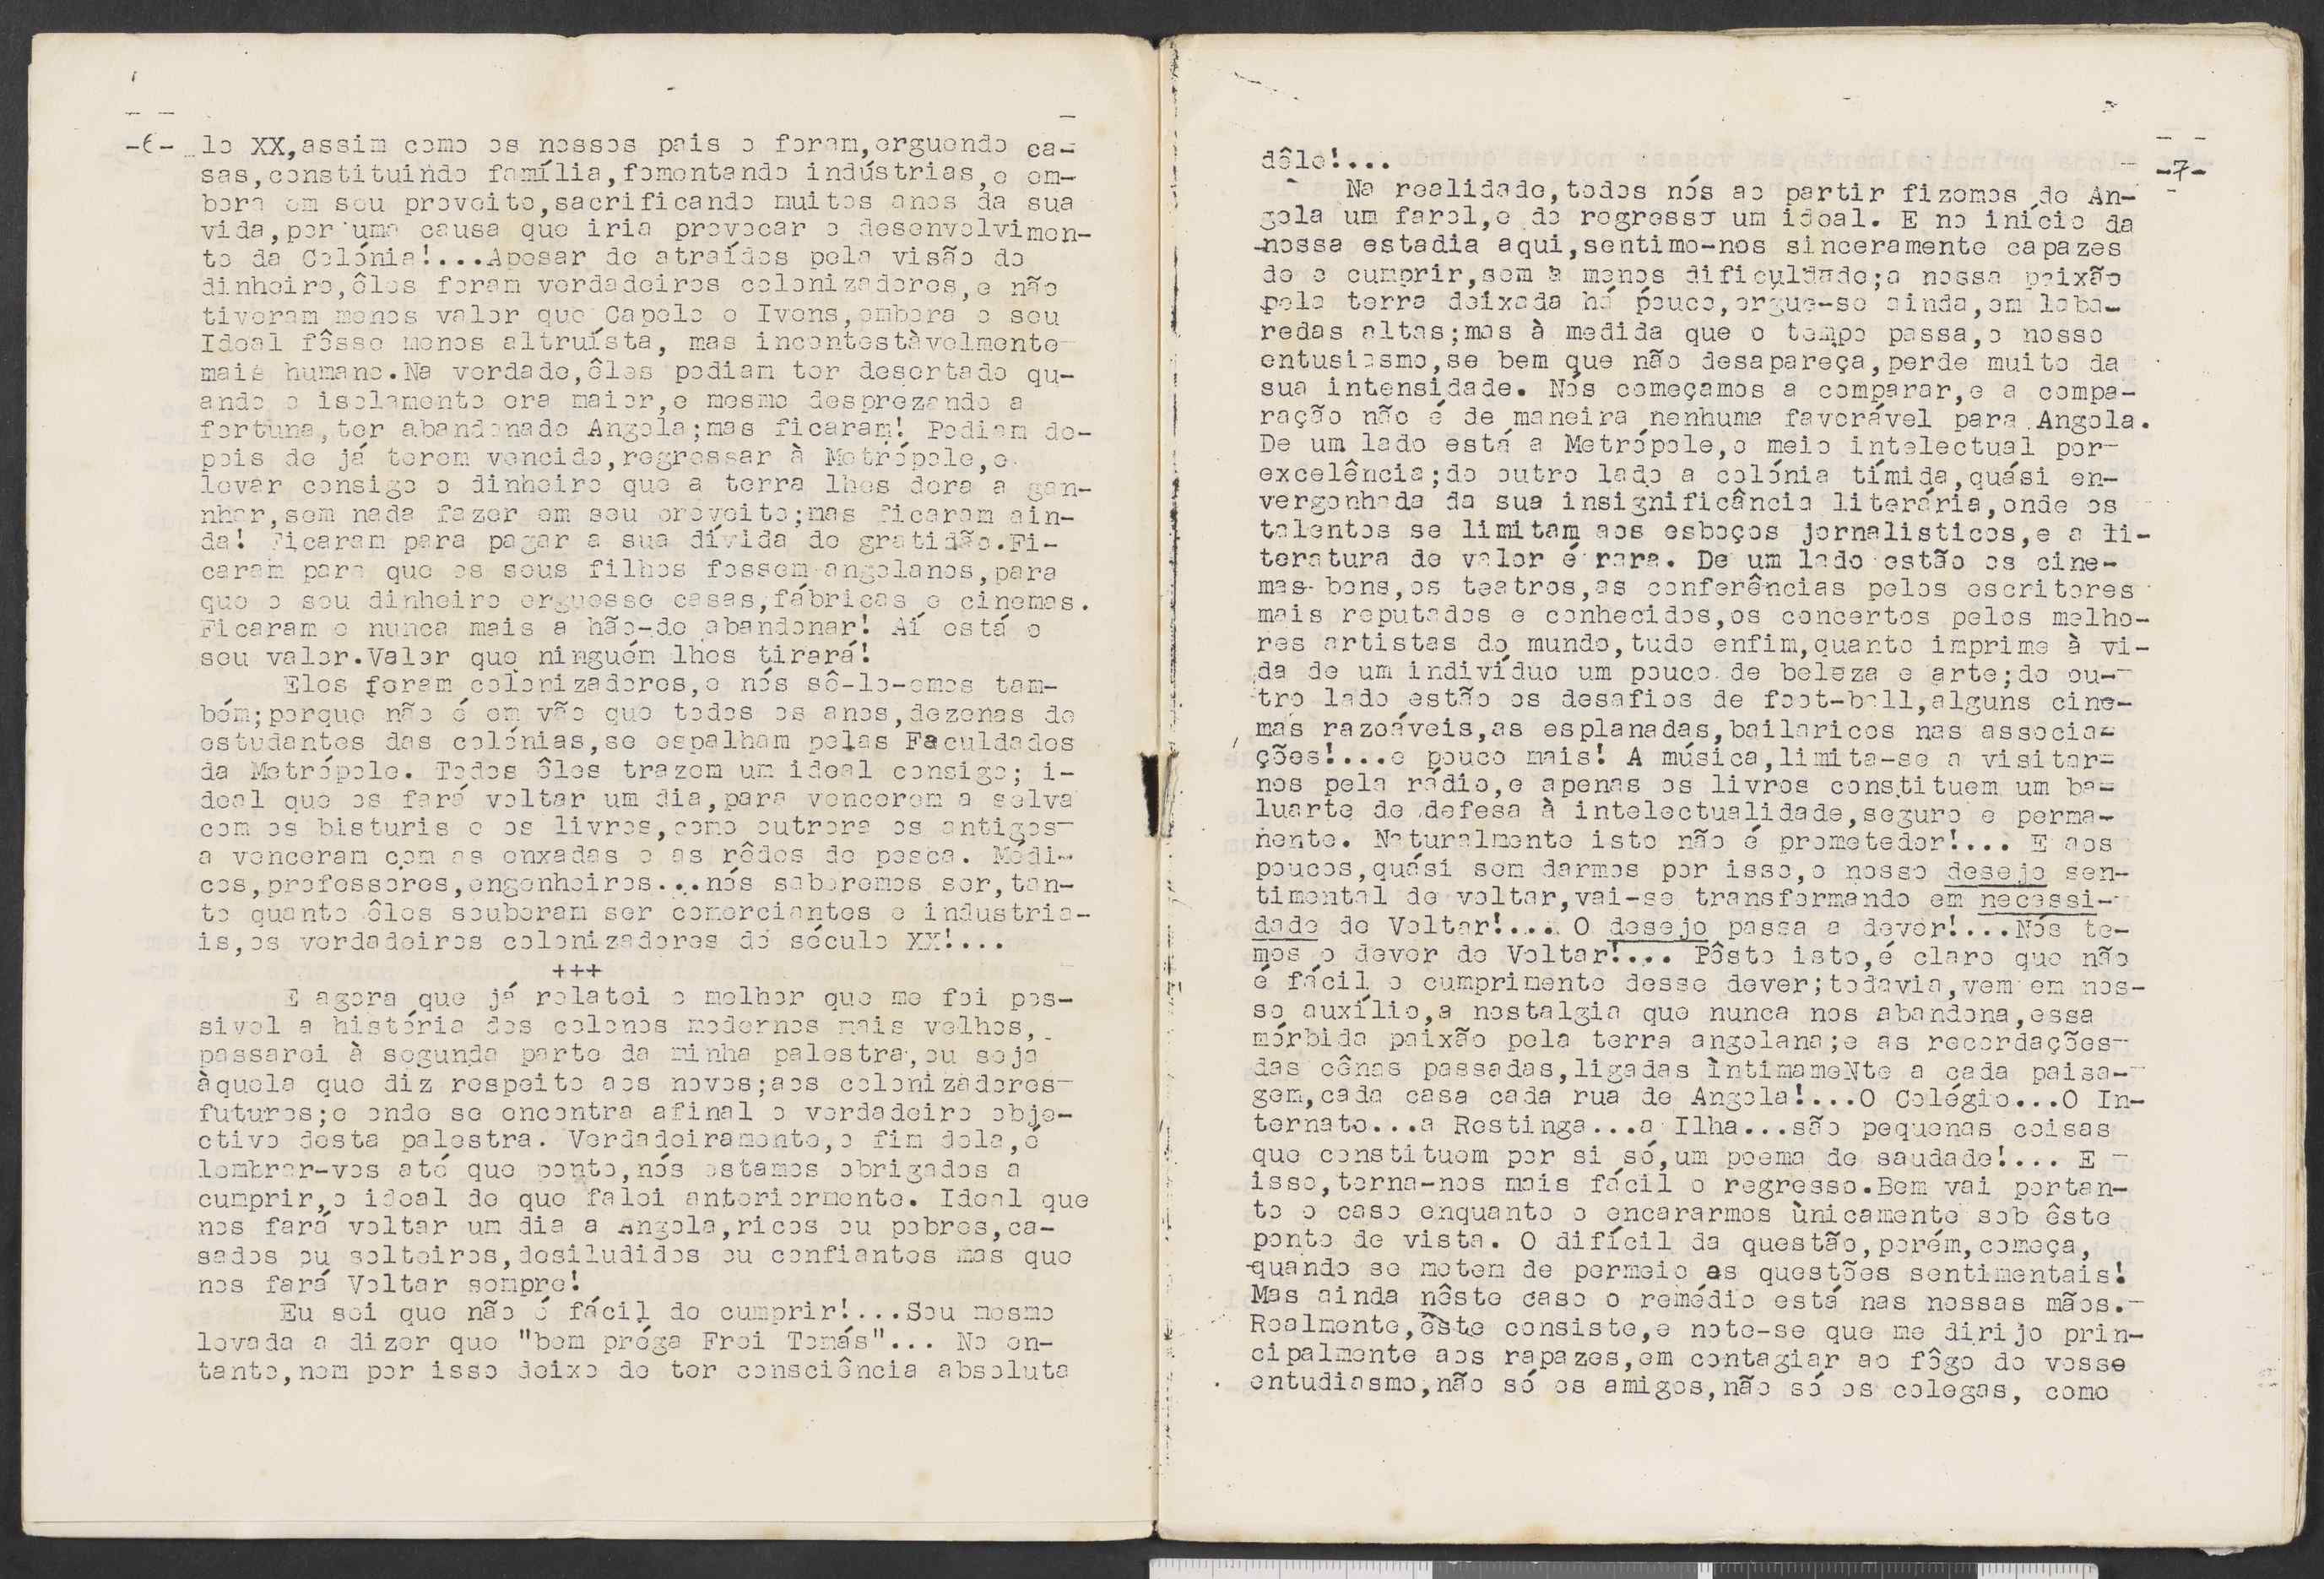 -6-
lo XX,assim como os nossos pais o foram,erguendo ca-
sas,constituindo família,fomentando indústrias,e em-
bora em seu proveito,sacrificando muitos anos da sua
vida,por uma causa que iria provocar o desenvolvimen-
to da Colónia!...Apesar de atraídos pela visão do
dinheiro,êles foram verdadeiros colonizadores,e não
tiveram menos valor que Capelo e Ivens,embora o seu
Ideal fôsse menos altruísta, mas incontestàvelmente
mais humano.Na verdade,êles podiam ter desertado qu-
ando o isolamento era maior,e mesmo desprezando a
fortuna,ter abandonado Angola;mas ficaram! Podiam de-
pois de já terem vencido,regressar à Metrópole,e
levar consigo o dinheiro que a terra lhes dera a gan-
nhar,sem nada fazer em seu proveito;mas ficaram ain-
da! Ficaram para pagar a sua dívida de gratidão.Fi-
caram para que os seus filhos fossem angolanos,para
que o seu dinheiro erguesse casas,fábricas e cinemas.
Ficaram e nunca mais a hão-de abandonar! Aí está o
seu valor.Valor que ninguém lhes tirará!
Eles foram colonizadores,e nós sê-lo-emos tam-
bém;porque não é em vão que todos os anos,dezenas de
estudantes das colónias,se espalham pelas Faculdades
da Metrópole. Todos êles trazem um ideal consigo; i-
deal que os fará voltar um dia,para vencerem a selva
com os bisturis e os livros,como outrora os antigos
a venceram com as enxadas e as rêdes de pesca. Médi-
cos,professores,engenheiros...nós saberemos ser,tan-
to quanto êles souberam ser comerciantes e industria-
is,os verdadeiros colonizadores do século XX!...
+++
E agora que já relatei o melhor que me foi pos-
sivel a história dos colonos modernos mais velhos,
passarei à segunda parte da minha palestra,ou seja
àquela que diz respeito aos novos;aos colonizadores
futuros;e onde se encontra afinal o verdadeiro obje-
ctivo desta palestra. Verdadeiramente,o fim dela,é
lembrar-vos até que ponto,nós estamos obrigados a
cumprir,o ideal de que falei anteriormente. Ideal que
nos fará voltar um dia a Angola,ricos ou pobres,ca-
sados ou solteiros,desiludidos ou confiantes mas que
nos fará Voltar sempre!
Eu sei que não é fácil de cumprir!...Sou mesmo
levada a dizer que "bem préga Frei Tomás"... No en-
tanto,nem por isso deixo de ter consciência absoluta
-7-
dêle!...
Na realidade,todos nós ao partir fizemos de An-
gola um farol,e do regresso um ideal. E no início da
nossa estadia aqui,sentimo-nos sinceramente capazes
de o cumprir,sem a menos dificuldade;a nossa paixão
pela terra deixada há pouco,ergue-se ainda,em laba-
redas altas;mas à medida que o tempo passa,o nosso
entusiasmo,se bem que não desapareça,perde muito da
sua intensidade. Nós começamos a comparar,e a compa-
ração não é de maneira nenhuma favorável para Angola.
De um lado está a Metrópole,o meio intelectual por
excelência;do outro lado a colónia tímida,quási en-
vergonhada da sua insignificância literária,onde os
talentos se limitam aos esboços jornalisticos,e a li-
teratura de valor é rara. De um lado estão os cine-
mas bons,os teatros,as conferências pelos escritores
mais reputados e conhecidos,os concertos pelos melho-
res artistas do mundo,tudo enfim,quanto imprime à vi-
da de um indivíduo um pouco de beleza e arte;do ou-
tro lado estão os desafios de foot-ball,alguns cine-
mas razoáveis,as esplanadas,bailaricos nas associa-
ções!....e pouco mais! A música,limita-se a visitar-
nos pela rádio,e apenas os livros constituem um ba-
luarte de defesa à intelectualidade,seguro e perma-
nente. Naturalmente isto não é prometedor!... E aos
poucos,quási sem darmos por isso,o nosso desejo sen-
timental de voltar,vai-se transformando em necessi-
dade de Voltar!.... O desejo passa a dever!...Nós te-
mos o dever de Voltar!... Pôsto isto,é claro que não
é fácil o cumprimento desse dever;todavia,vem em nos-
so auxílio,a nostalgia que nunca nos abandona,essa
mórbida paixão pela terra angolana;e as recordações
das cênas passadas,ligadas ìntimameNte a cada paisa-
gem,cada casa cada rua de Angola!...O Colégio...O In-
ternato...a Restinga...a Ilha...são pequenas coisas
que constituem por si só,um poema de saudade!... E
isso,torna-nos mais fácil o regresso.Bem vai portan-
to o caso enquanto o encararmos ùnicamente sob êste
ponto de vista. O difícil da questão,porém,começa,
quando se metem de permeio as questões sentimentais!
Mas ainda nêste caso o remédio está nas nossas mãos.
Realmente,êste consiste,e note-se que me dirijo prin-
cipalmente aos rapazes,em contagiar ao fôgo do vosse
entudiasmo,não só os amigos,não só os colegas, como